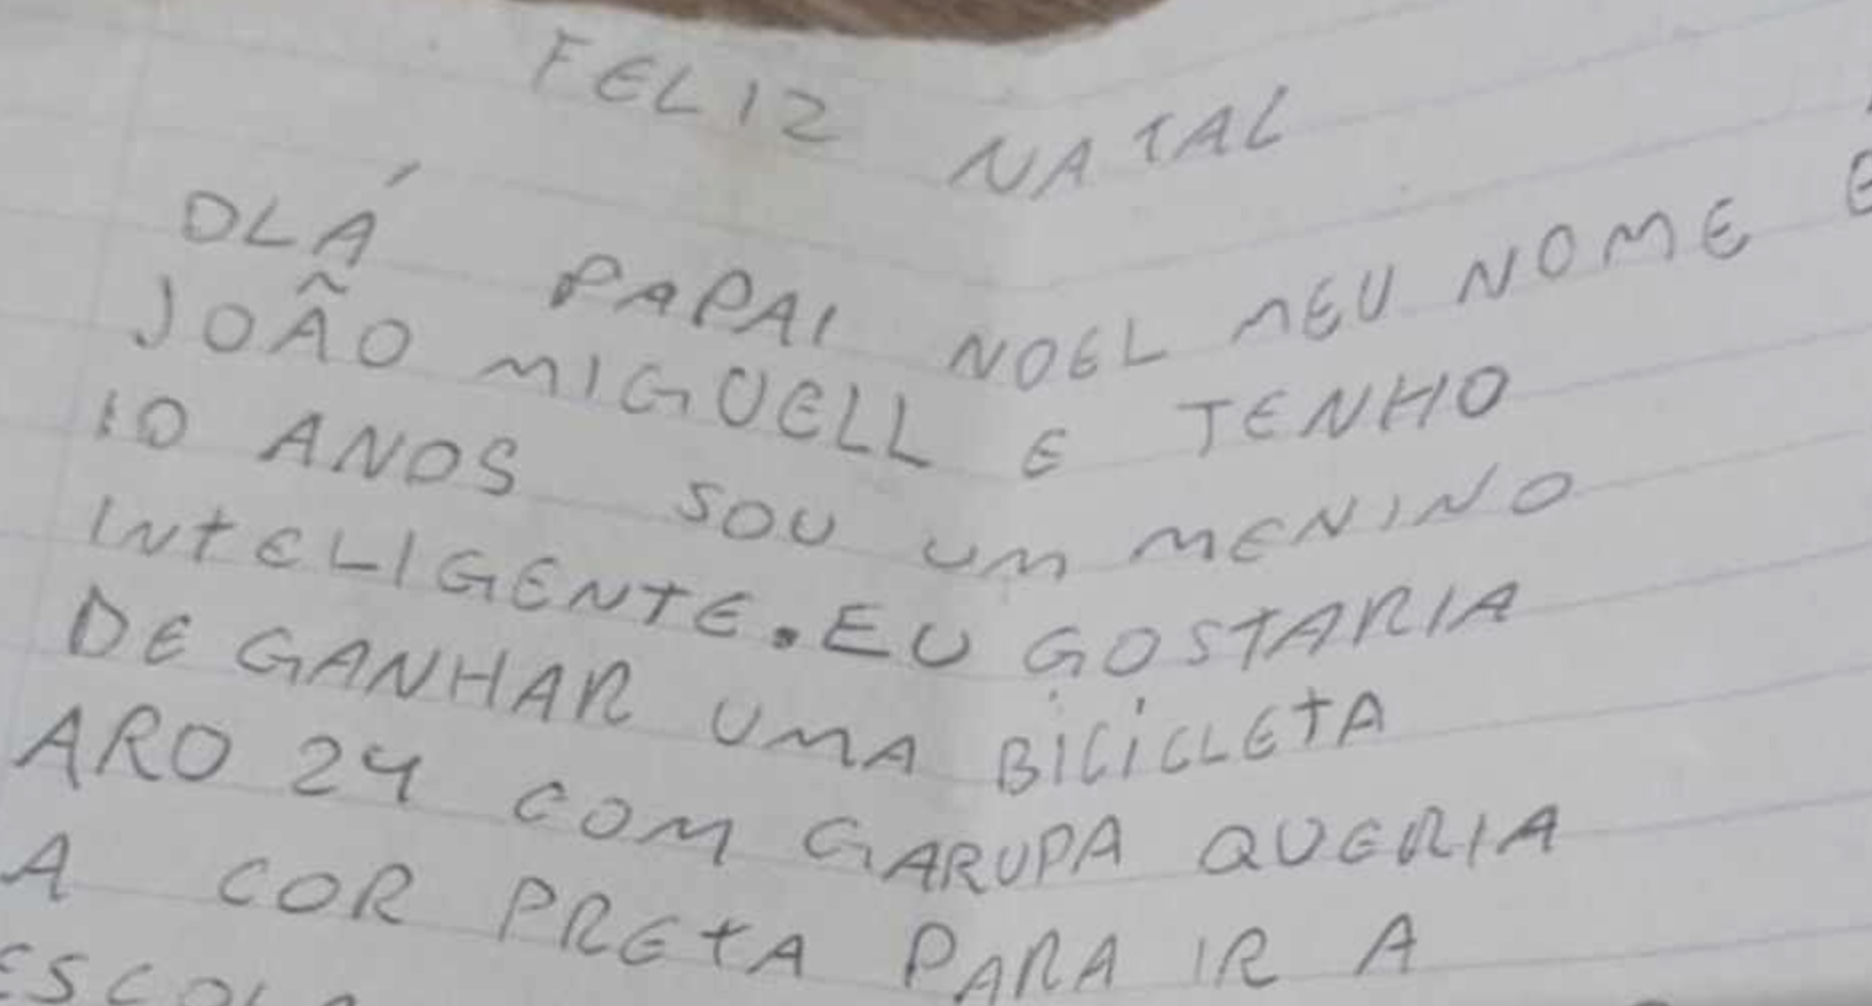 FELIZ NATAL
OLÁ PAPAI NOEL MEU NOME É
JOÃO MIGUELL E TENHO
10 ANOS SOU UM MENINO
INTELIGENTE. EU GOSTARIA
DE GANHAR UMA BICICLETA
ARO 24 COM GARUPA QUERIA
A COR PRETA PARA IR A
ESCOLA